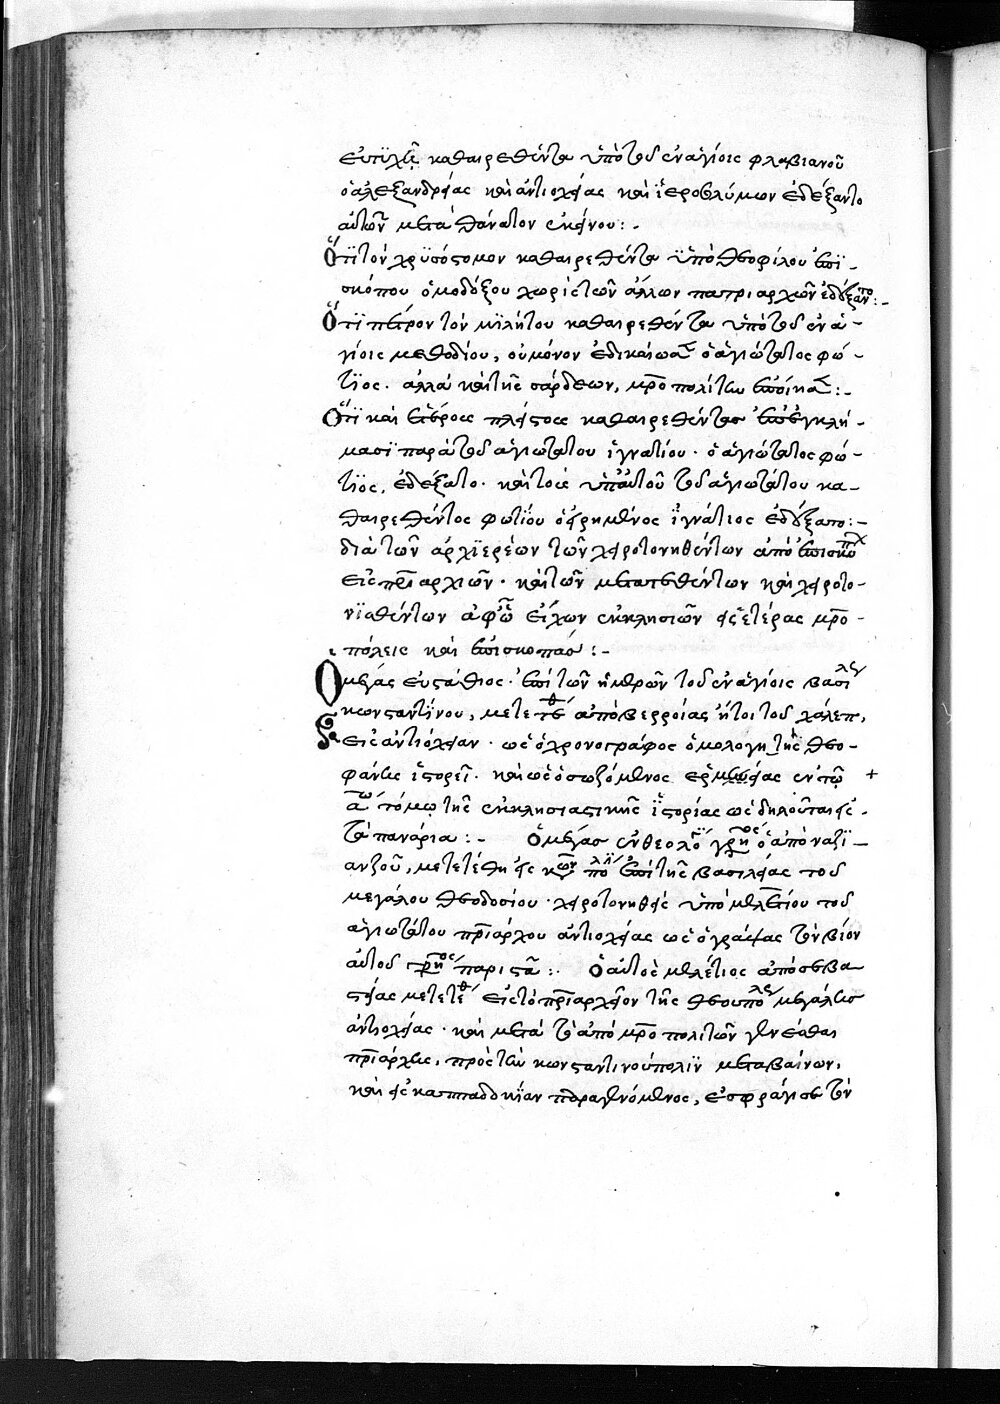 εὐτυχῆ καθαιρεθέντα ὑπὸ τοῦ ἐν ἁγίοις φλαβιανοῦ
ὁ ἀλεξανδρείας καὶ ἀντιοχείας καὶ ἱεροσολύμων ἐδέξαντο
αὐτὸν μετὰ θάνατον ἐκείνου :-
Ὅτι τὸν χρυσόστομον καθαιρεθέντα ὑπὸ θεοφίλου ἐπι-
σκόπου ὁμοδόξου χωρὶς τῶν ἄλλων πατριαρχῶν :-
Ὅτι πέτρον τὸν μιλήτου καθαιρεθέντα ὑπὸ τοῦ ἐν ἁ-
γίοις μεθοδίου, οὐ μόνον ἐδικαίωσεν ὁ ἁγιώτατος φώ-
τιος. ἀλλὰ καὶ τῆς σάρδεων, μροπολίτην ἐποίησεν :-
Ὅτι καὶ ἑτέρους πλείστους καθαιρεθέντας ἐπὶ ἐγκλή-
μασι παρὰ τοῦ ἁγιωτάτου ἰγνατίου· ὁ ἁγιώτατος φώ-
τιος, ἐδέξατο· καὶ τοὺς ὑπ' αὐτοῦ τοῦ ἁγιωτάτου κα-
θαιρεθέντος φωτίου ὁ εἰρημένος ἰγνάτιος :-
διὰ τῶν ἀρχιερέων τῶν χειροτονηθέντων ἀπὸ ἐπισκο
εἰς πριαρχιῶν· καὶ τῶν μετατεθέντων καὶ χειροτο-
νιθέντων ἀφ' ὧν εἶχον ἐκκλησιῶν εἰς ἑτέρας μρο-
πόλεις καὶ ἐπισκοπάς :-
Ὁ μέγας εὐστάθιος· ἐπὶ τῶν ἡμερῶν τοῦ ἐν ἁγίοις βασιλέως
κωνσταντίνου, μετετέθη ἀπὸ βερροίας ἤτοι τοῦ χάλεπ,
εἰς ἀντιόχειαν· ὡς ὁ χρονογράφος ὁμολογητὴς θεο-
φάνης ἱστορεῖ· καὶ ὡς ὁ σωζόμενος ἑρμείας ἐν τῷ +
αω τόμω τῆς ἐκκλησιαστικῆς ἱστορίας ὡς δηλοῦται εἰς
τὰ πανάρια :- Ὁ μέγας ἐν θεολό γρηος ὁ ἀπὸ ναζι-
ανζοῦ, μετετέθη εἰς κων πο ἐπὶ τῆς βασιλείας τοῦ
μεγάλου θεοδοσίου· χειροτονηθεὶς ὑπὸ μελετίου τοῦ
ἁγιωτάτου πριάρχου ἀντιοχείας ὡς ὁ γράψας τὸν βίον
αὐτοῦ γρηος παριστᾶ :- Ὁ αὐτὸς μελέτιος ἀπὸ σεβα
στείας μετετέθ εἰς τὸ πριαρχεῖον τῆς θεουπόλεως μεγάλης
ἀντιοχείας· καὶ μετὰ τὸ ἀπὸ μροπολιτῶν γενέσθαι
πριάρχης, πρὸς τὴν κωνσταντινούπολιν μεταβαίνων,
καὶ εἰς καππαδοκίαν παραγενόμενος, ἐσφράγισε τὸν